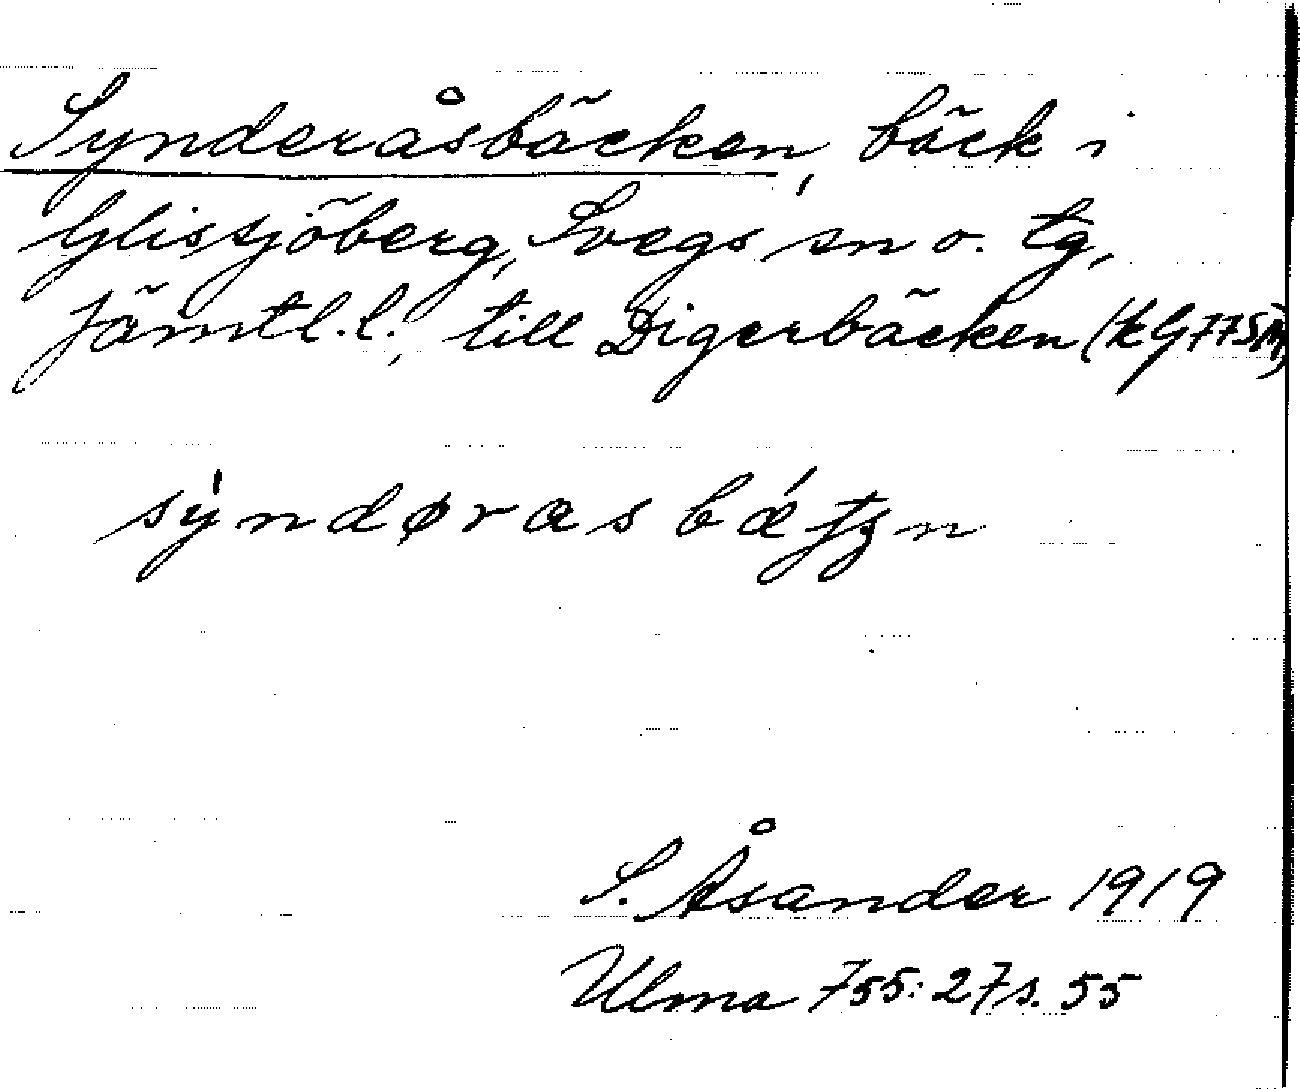 Synderåsbäcken, bäck i
Glissjöberg, Svegs sn o. tg,
Jämtl. l., till Digerbäcken
sýndøras bǽtʒn
S. Åsander 1919
Ulma 755:27 s. 55